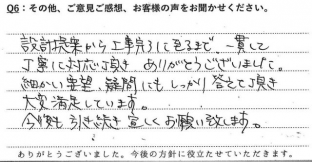 Q6：その他、ご意見ご感想、お客様の声をお聞かせください。
設計提案から工事完了に至るまで、一貫して
丁寧に対応頂き ありがとうございまして。
細かい要望、疑問にもしっかり答えて頂き
大変満足しています。
今後も引き続き宜しくお願い致します。
ありがとうございました。今後の方針に役立たせていただきます。